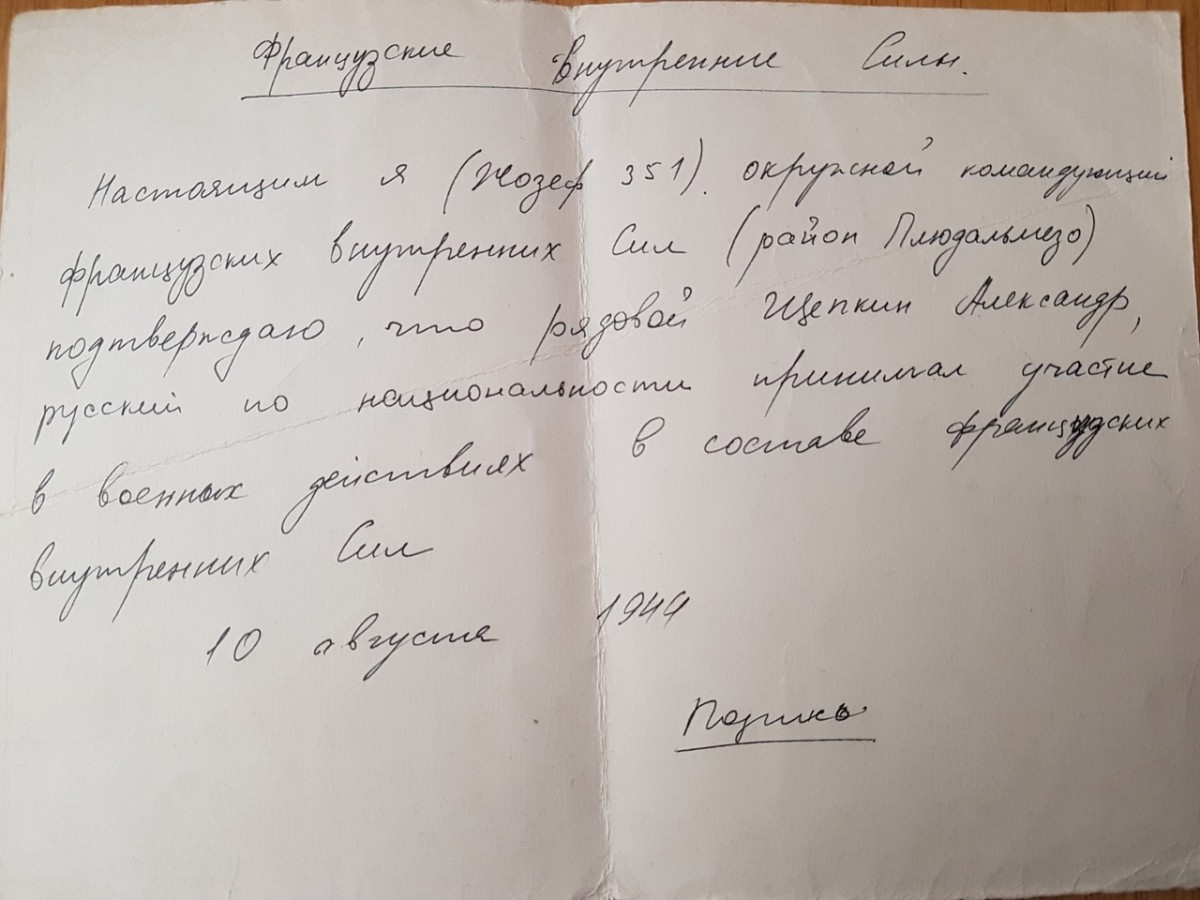 Французские внутренние Силы.
Настоящим я (Жозеф 351). окружной командующий
французских внутренних Сил (район Плюдальмезо)
подтверждаю, что рядовой Щепкин Александр,
русский по национальности принимал участие
в военных действиях в составе французских
внутренних Сил
10 августа 1944
Подпись